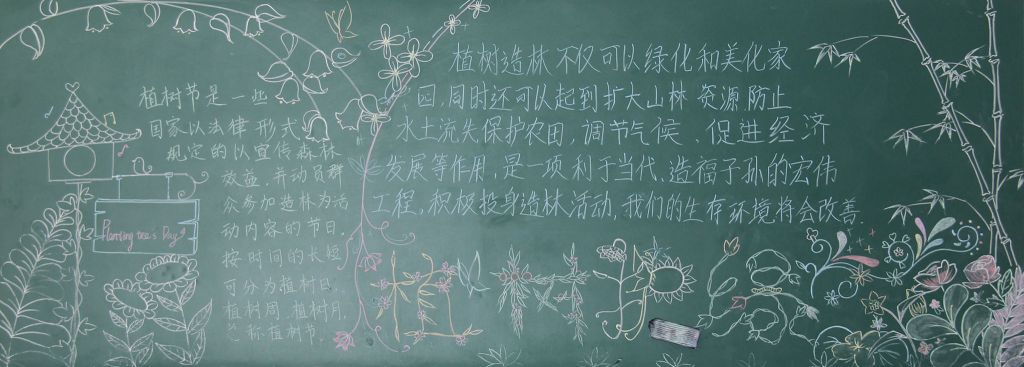 植树节是一些
国家以法律形式
规定的以宣传森林
效益,并动员群
众参加造林为活
动内容的节日。
按时间的长短
可分为植树日、
植树周、植树月,
总称植树节。
植树造林不仅可以绿化和美化家
园,同时还可以起到扩大山林资源防止
水土流失保护农田,调节气候、促进经济
发展等作用,是一项利于当代、造福子孙的宏伟
工程,积极投身造林活动,我们的生存环境将会改善.
Planting tree's Day
植树节